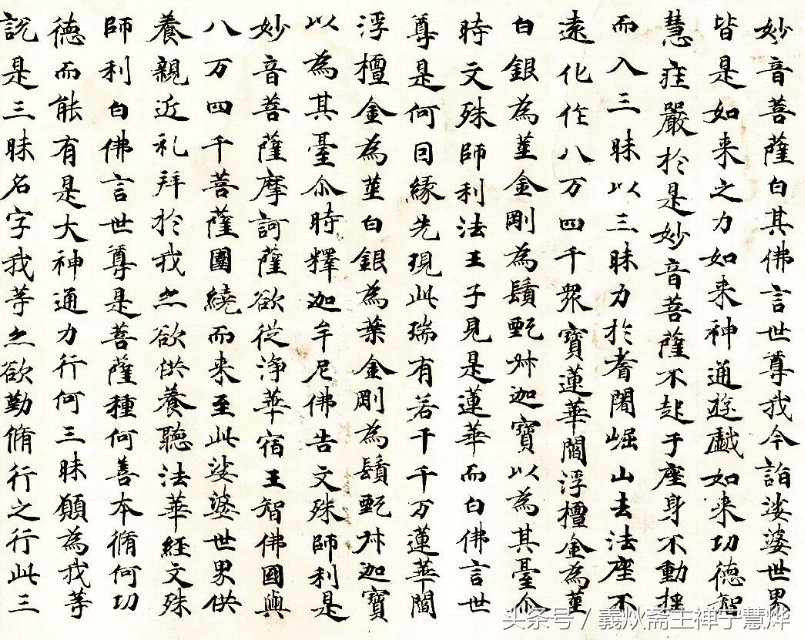 妙音菩薩白其佛言世尊我今詣娑婆世界
皆是如来之力如来神通遊戲如来功德智
慧莊嚴於是妙音菩薩不起于座身不動揺
而入三昧以三昧力於耆闍崛山去法座不
遠化作八万四千衆寶蓮華閻浮檀金為莖
白銀為葉金剛為鬚甄叔迦寶以為其臺尒
時文殊師利法王子見是蓮華而白佛言世
尊是何因緣先現此瑞有若干千万蓮華閻
浮檀金為莖白銀為葉金剛為鬚甄叔迦寶
以為其臺尒時釋迦牟尼佛告文殊師利是
妙音菩薩摩訶薩欲從淨華宿王智佛國與
八万四千菩薩圍繞而来至此娑婆世界供
養親近礼拜於我亦欲供養聽法華經文殊
師利白佛言世尊是菩薩種何善本脩何功
德而能有是大神通力行何三昧願為我等
說是三昧名字我等亦欲勤脩行之行此三
头条号 / 義炏斋主禅宁慧烨